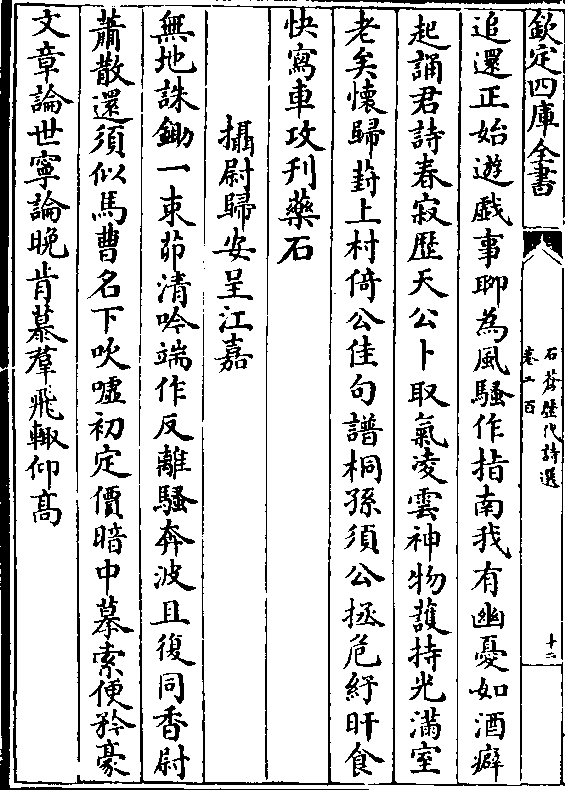 欽定四庫全書
石倉歷代詩選
卷二百
十二
追還正始遊戲事聊為風騷作指南我有幽憂如酒癖
起誦君詩春寂歴天公卜取氣凌雲神物護持光滿室
老矣懷歸葑上村倚公佳句譜桐孫須公拯危紓旰食
快寫車攻刋藥石
攝尉歸安呈江嘉
無地誅鋤一束茆清吟端作反離騷奔波且復同香尉
蕭散還須似馬曹名下吹噓初定價暗中摹索便矜豪
文章論世寧論晚肯慕羣飛輙仰髙